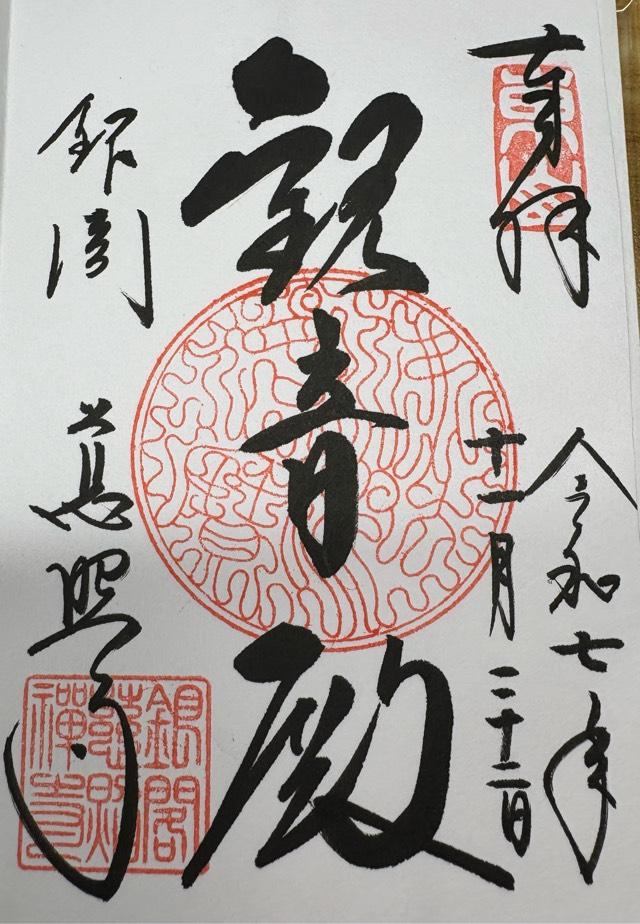 奉拝
東山
令和七年
十一月二十二日
観音殿
銀閣
慈照寺
銀閣
慈照
禪寺